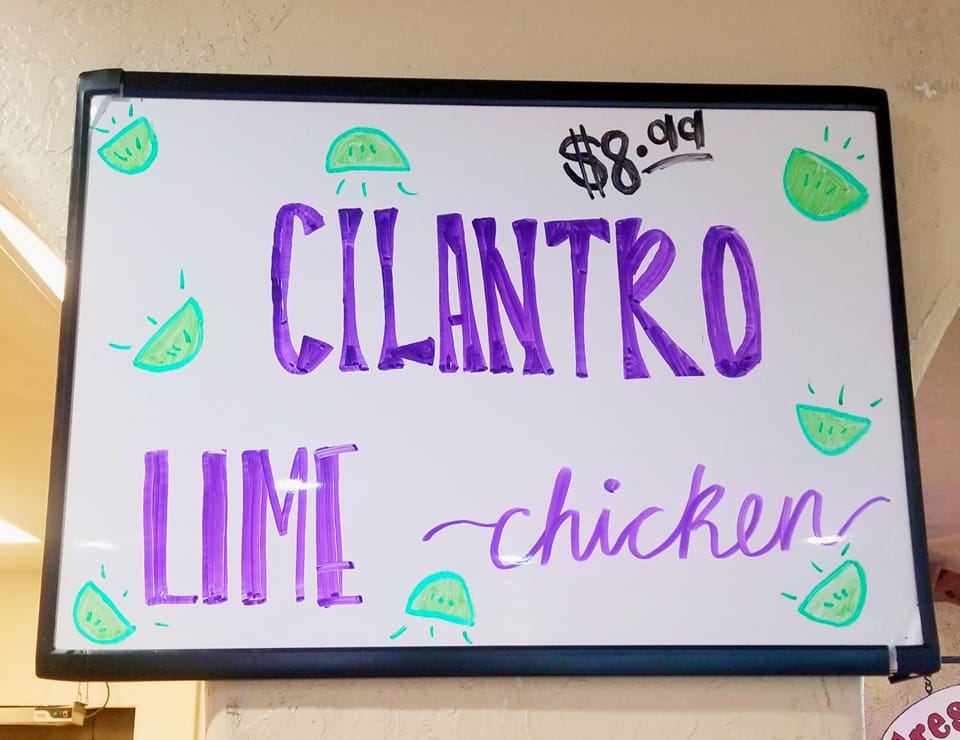 $8.99
CILANTRO
LIME chicken